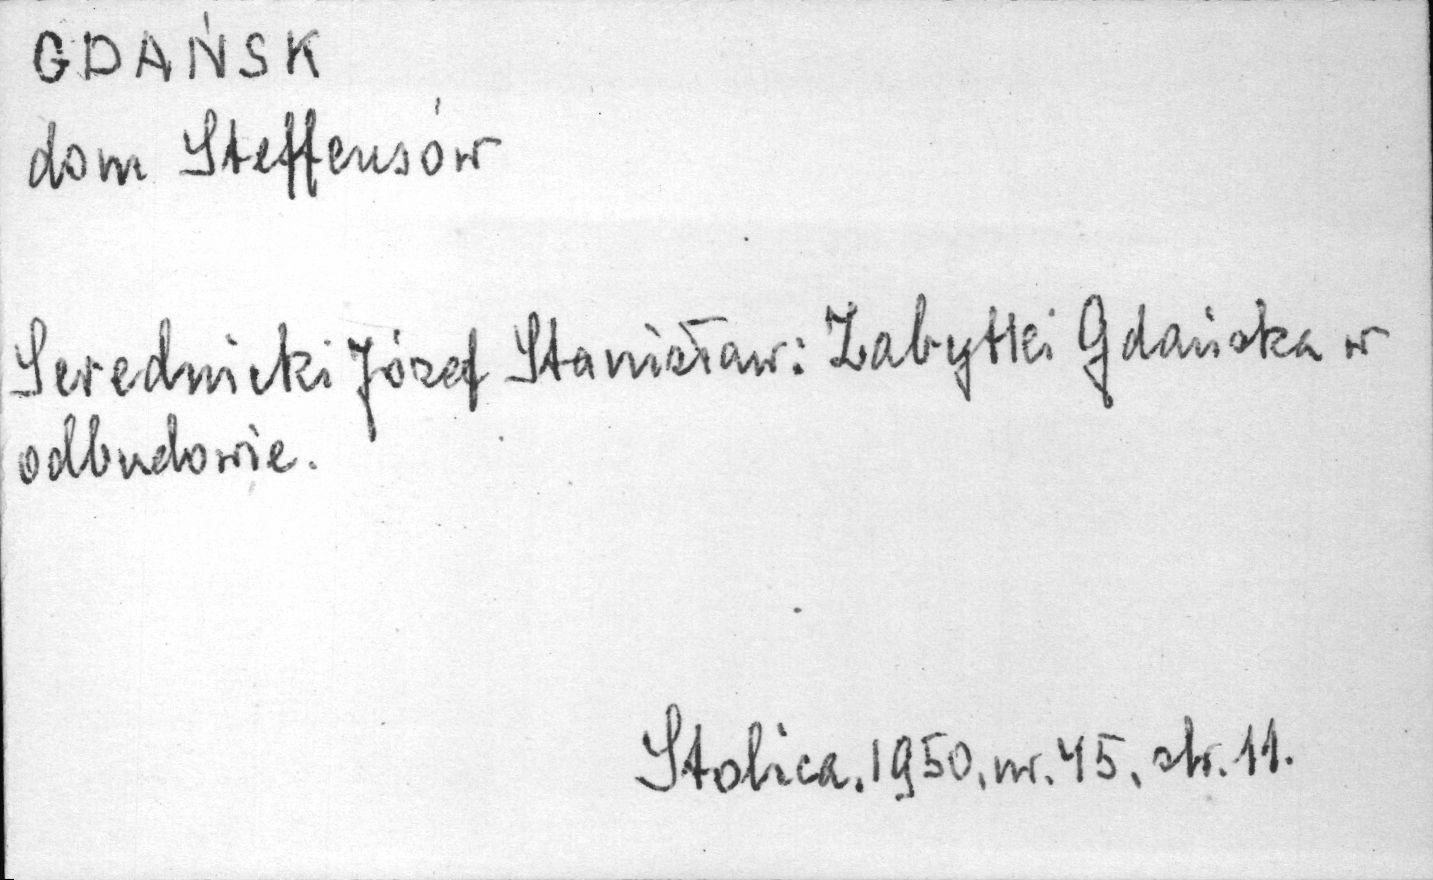 GDAŃSK
dom Steffensów
Serednicki Józef Stanisław: Zabytki Gdańska w
odbudowie.
Stolica. 1950, nr. 45, str. 11.